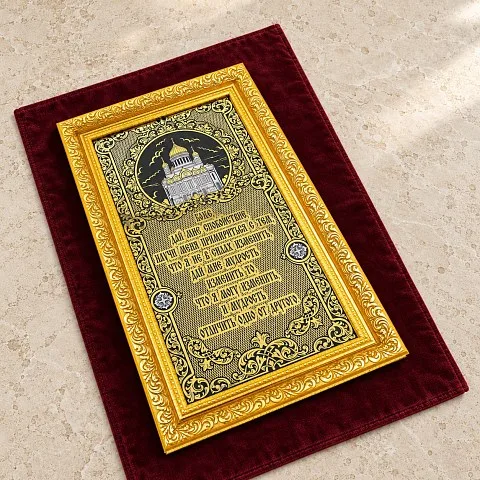 БОЖЕ
ДАЙ МНЕ СПОКОЙСТВИЕ
НАУЧИ МЕНЯ ПРИМИРИТЬСЯ С ТЕМ,
ЧТО Я НЕ В СИЛАХ ИЗМЕНИТЬ,
ДАЙ МНЕ МУДРОСТЬ
ИЗМЕНИТЬ ТО
ЧТО Я МОГУ ИЗМЕНИТЬ
И МУДРОСТЬ
ОТЛИЧИТЬ ОДНО ОТ ДРУГОГО